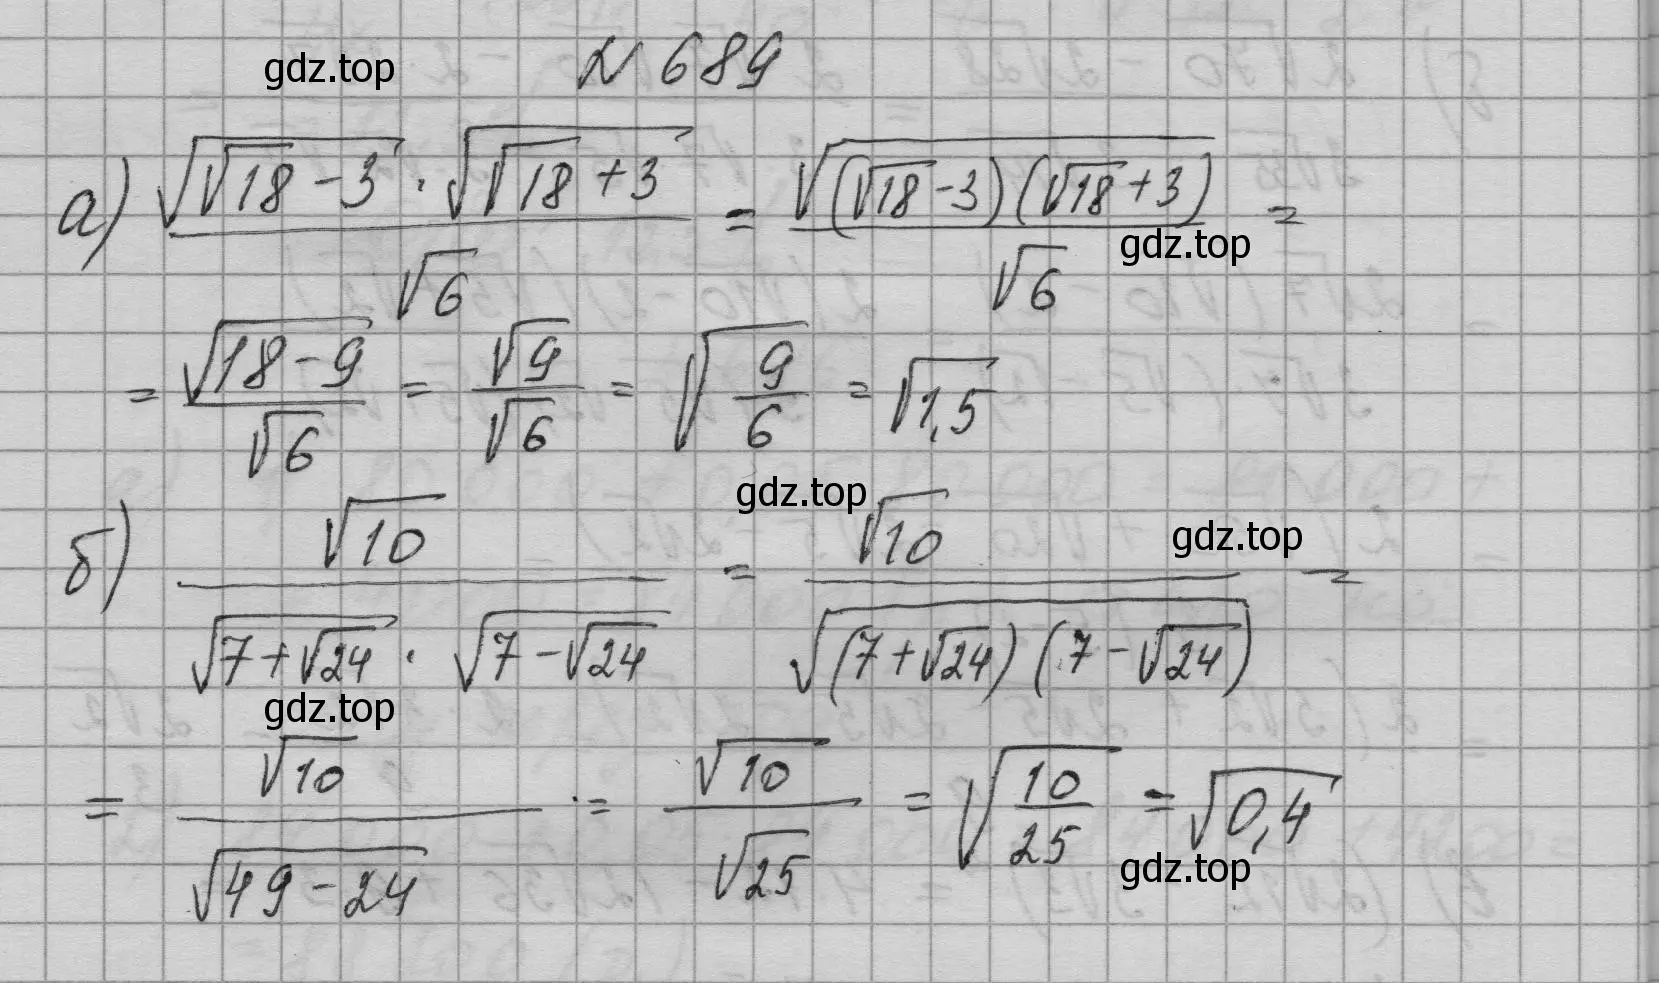 gdz.top № 689
а) √(√18 - 3) · √(√18 + 3) / √6 = √((√18 - 3)(√18 + 3)) / √6 =
gdz.top
= √(18 - 9) / √6 = √9 / √6 = √(9/6) = √1,5
gdz.top
б) √10 / (√(7 + √24) · √(7 - √24)) = √10 / √((7 + √24)(7 - √24)) =
gdz.top
gdz.top
= √10 / √(49 - 24) = √10 / √25 = √(10/25) = √0,4
gdz.top